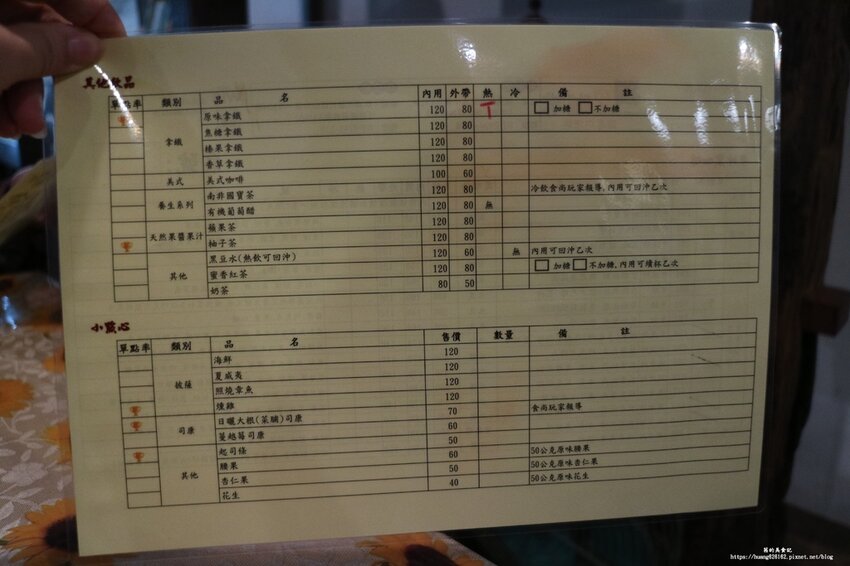 其他飲品
單點率 類別 品 名 內用 外帶 熱 冷 備 註
原味拿鐵 120 80 T 加糖 不加糖
焦糖拿鐵 120 80
拿鐵
榛果拿鐵 120 80
香草拿鐵 120 80
美式 美式咖啡 100 60
南非國寶茶 120 80 冷飲食尚玩家報導,內用可回沖乙次
養生系列
有機葡萄醋 120 80 無
蘋果茶 120 80
天然果醬果汁
柚子茶 120 80
黑豆水(熱飲可回沖) 120 60 無 內用可回沖乙次
其他 蜜香紅茶 120 80 加糖 不加糖,內用可續杯乙次
奶茶 80 50
小點心
單點率 類別 品 名 售價 數量 備 註
海鮮 120
夏威夷 120
披薩
照燒章魚 120
燻雞 120
日曬大根(菜脯)司康 70 食尚玩家報導
司康
蔓越莓司康 60
起司條 50
腰果 60 50公克原味腰果
其他
杏仁果 50 50公克原味杏仁果
花生 40 50公克原味花生
https://huang626162.pixnet.net/blog